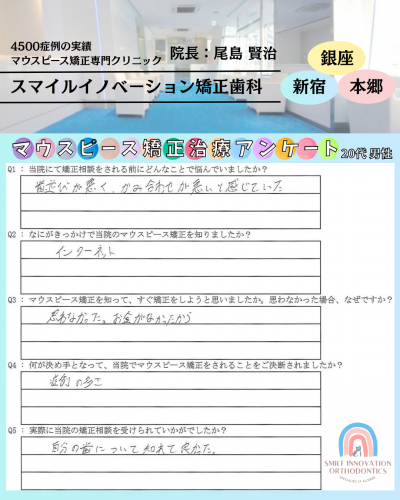 4500症例の実績
マウスピース矯正専門クリニック
院長：尾島 賢治
スマイルイノベーション矯正歯科
銀座
新宿
本郷
マウスピース矯正治療アンケート 20代 男性
Q1 : 当院にて矯正相談をされる前にどんなことで悩んでいましたか？
歯並びが悪く、かみ合わせが悪いと感じていた
Q2 : なにがきっかけで当院のマウスピース矯正を知りましたか？
インターネット
Q3 : マウスピース矯正を知って、すぐ矯正をしようと思いましたか。思わなかった場合、なぜですか？
思わなかった。お金がなかったから
Q4 : 何が決め手となって、当院でマウスピース矯正をされることをご決断されましたか？
症例の多さ
Q5 : 実際に当院の矯正相談を受けられていかがでしたか？
自分の歯について知れて良かった。
SMILE INNOVATION
ORTHODONTICS